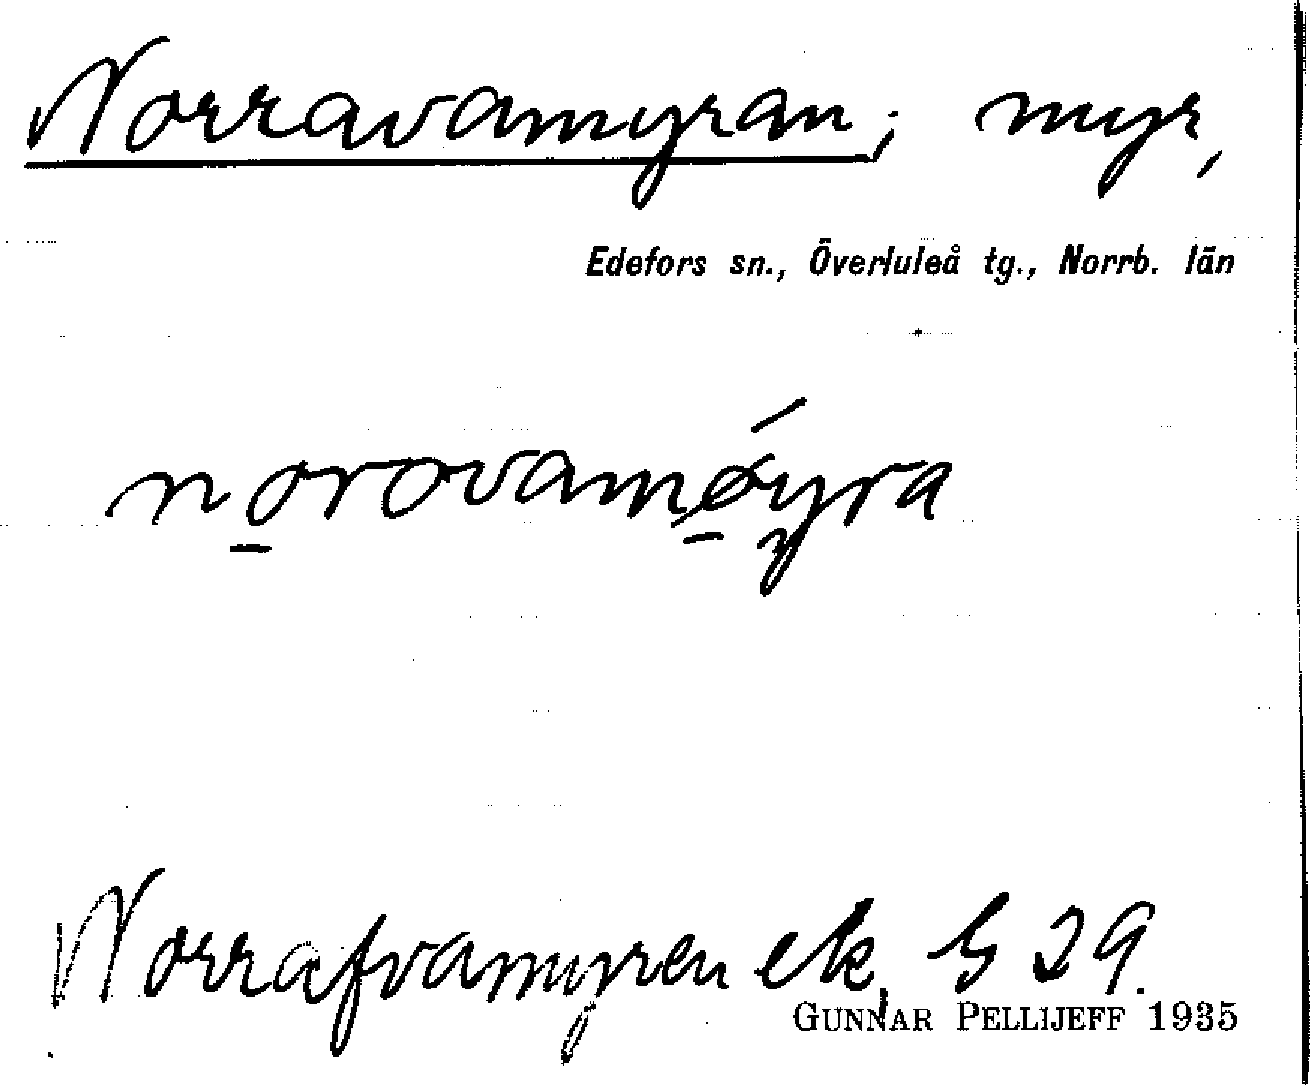 Norravamyran; myr,
Edefors sn., Överluleå tg., Norrb. län
norovamøyra
Norrafvamyren ek, G 29.
GUNNAR PELLIJEFF 1935